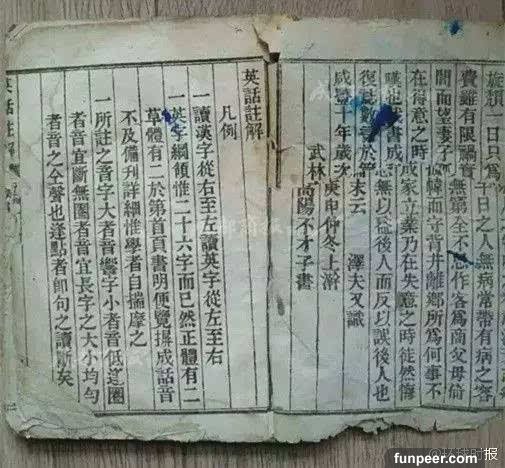 旋類一日只為午日之人無病常帶有病之容
費雖有限禍害無窮全不思作客爲商父母倚
閭而望妻子幃而守背井離鄉所爲何事不
在得意之時成家立業乃在失意之時徒然悔
嘆也書成無以益後人而反以誤後人也
復數言於末云 澤夫又識
咸豐十年歲次庚申仲冬上澣
武林高陽不才子書
英話註解
凡例
一讀漢字從右至左讀英字從左至右
一英字綱領惟二十六字而已然正體有二
草體有二於第首頁書明便覽之揖成話音
不及備刊詳細惟學者自揣摩之
一所註之音字大者音響字小者音低逢圈
者音宜斷無圈者音宜長字之大小均勻
者音之仝聲也逢點者即句之讀斷矣
英話註解
@环球时报
funpeer.com